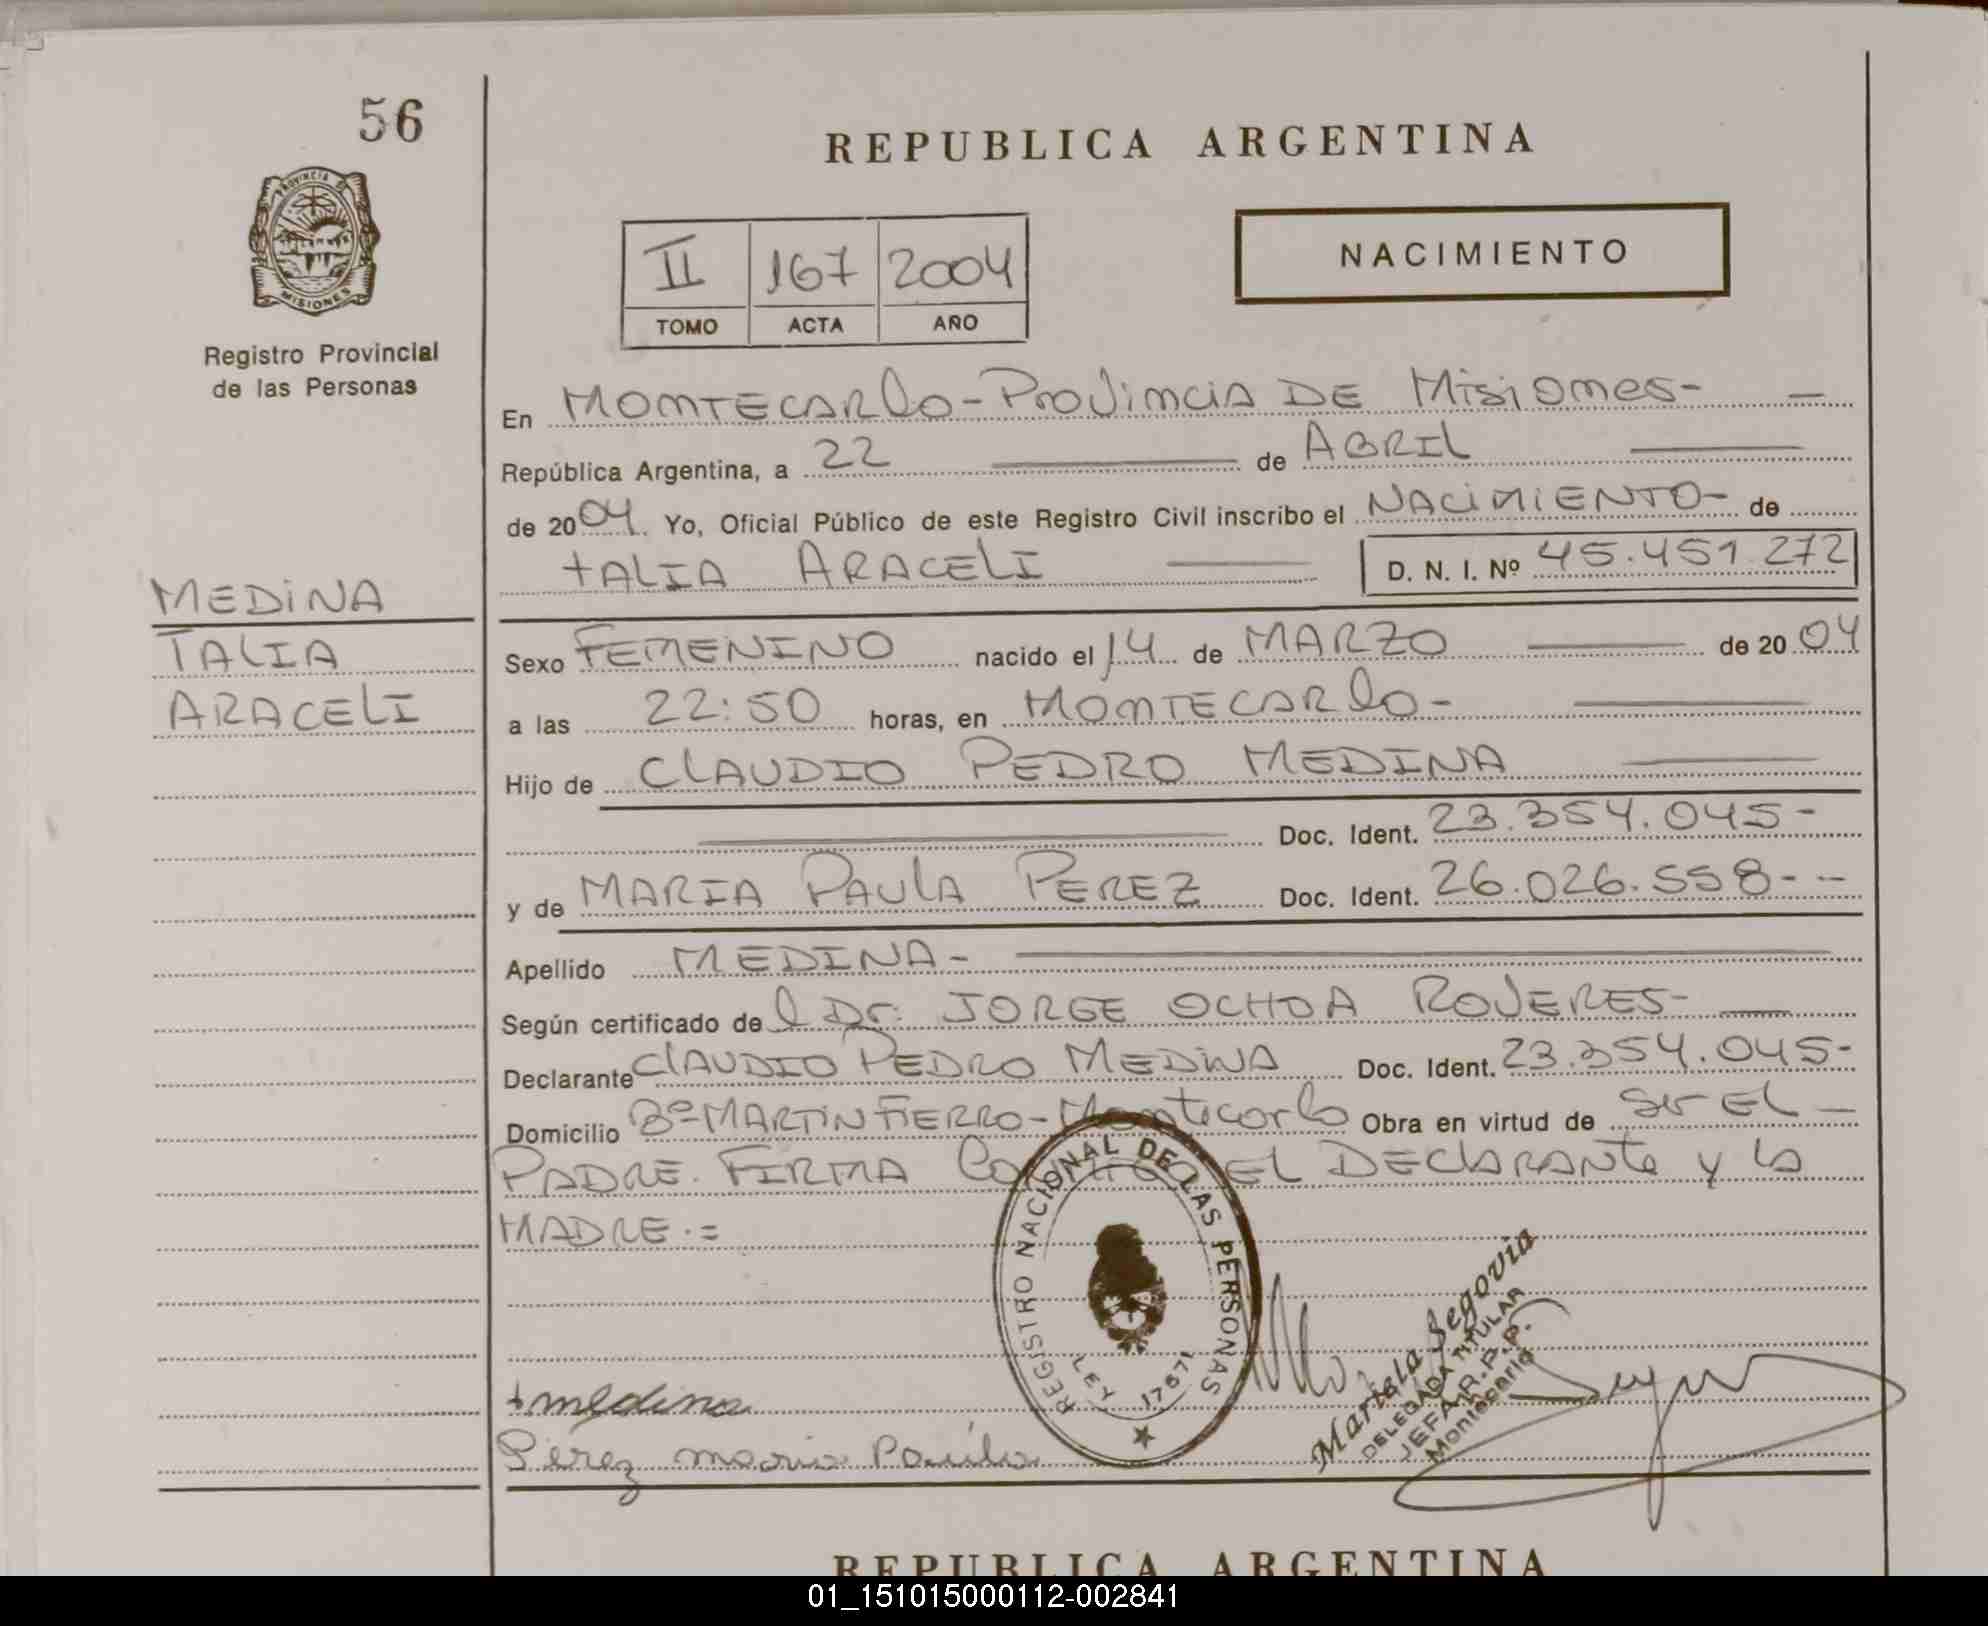 56
REPUBLICA ARGENTINA
PROVINCIA DE
MISIONES
Registro Provincial
de las Personas
II 167 2004
TOMO ACTA AÑO
NACIMIENTO
En MONTECARLO - PROVINCIA DE MISIONES -
República Argentina, a 22 de ABRIL
de 2004. Yo, Oficial Público de este Registro Civil inscribo el NACIMIENTO - de
TALIA ARACELI D. N. I. Nº 45.451.272
MEDINA
TALIA
ARACELI
Sexo FEMENINO nacido el 14 de MARZO de 2004
a las 22:50 horas, en MONTECARLO -
Hijo de CLAUDIO PEDRO MEDINA
Doc. Ident. 23.354.045 -
y de MARIA PAULA PEREZ Doc. Ident. 26.026.558 - -
Apellido MEDINA -
Según certificado del Dr. JORGE OCHOA ROVERES -
Declarante CLAUDIO PEDRO MEDINA Doc. Ident. 23.354.045 -
Domicilio Bº MARTIN FIERRO - Montecarlo Obra en virtud de ser EL
PADRE. FIRMA CONMIGO EL DECLARANTE y LA
MADRE. =
REGISTRO NACIONAL DE LAS PERSONAS
LEY 17671
Mariela Segovia
DELEGADA TITULAR
JEFA R.P.P.
Montecarlo
medina
Pérez maria Paula
REPUBLICA ARGENTINA
01_151015000112-002841